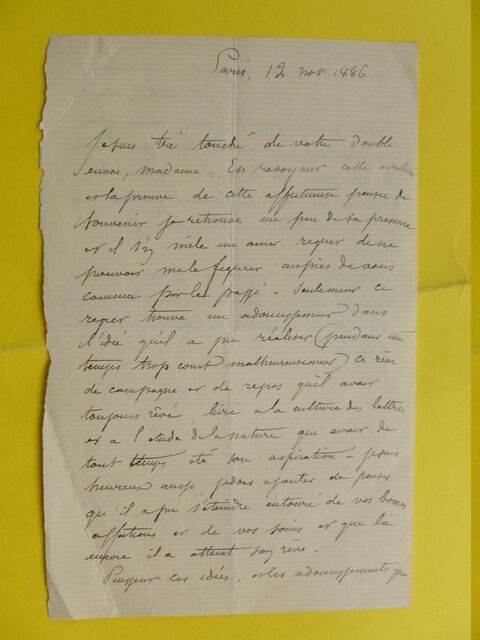 Paris, 12 nov 1886
Je suis très touché de votre double
envoi, madame. En revoyant cette
et la preuve de cette affectueuse pensée de
souvenir je retrouve un peu de sa présence,
et il s'y mêle un amer regret de ne
pouvoir me le figurer auprès de vous
comme par le passé. Seulement ce
regret trouve un adoucissement dans
l'idée qu'il a pu réaliser (pendant un
temps trop court malheureusement) ce rêve
de campagne et de repos qu'il avait
toujours rêvé livré a la culture des lettres
et a l'étude de la nature qui avait de
tout temps été son aspiration - je suis
heureux aussi je dois ajouter de penser
qu'il a pu s'éteindre entouré de vos bonnes
affections et de vos soins et que là
encore il a atteint son rêve.
Puissent ces idées, et les adoucissements que